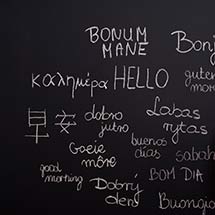 BONUM
MANE
Bonj
καλημέρα HELLO
guten
mor
早安
dobro
jutro
Labas
rytas
Goeie
môre
buenos
días
sabah
good
morning
Dobrý
deň
BOM DIA
Buongio